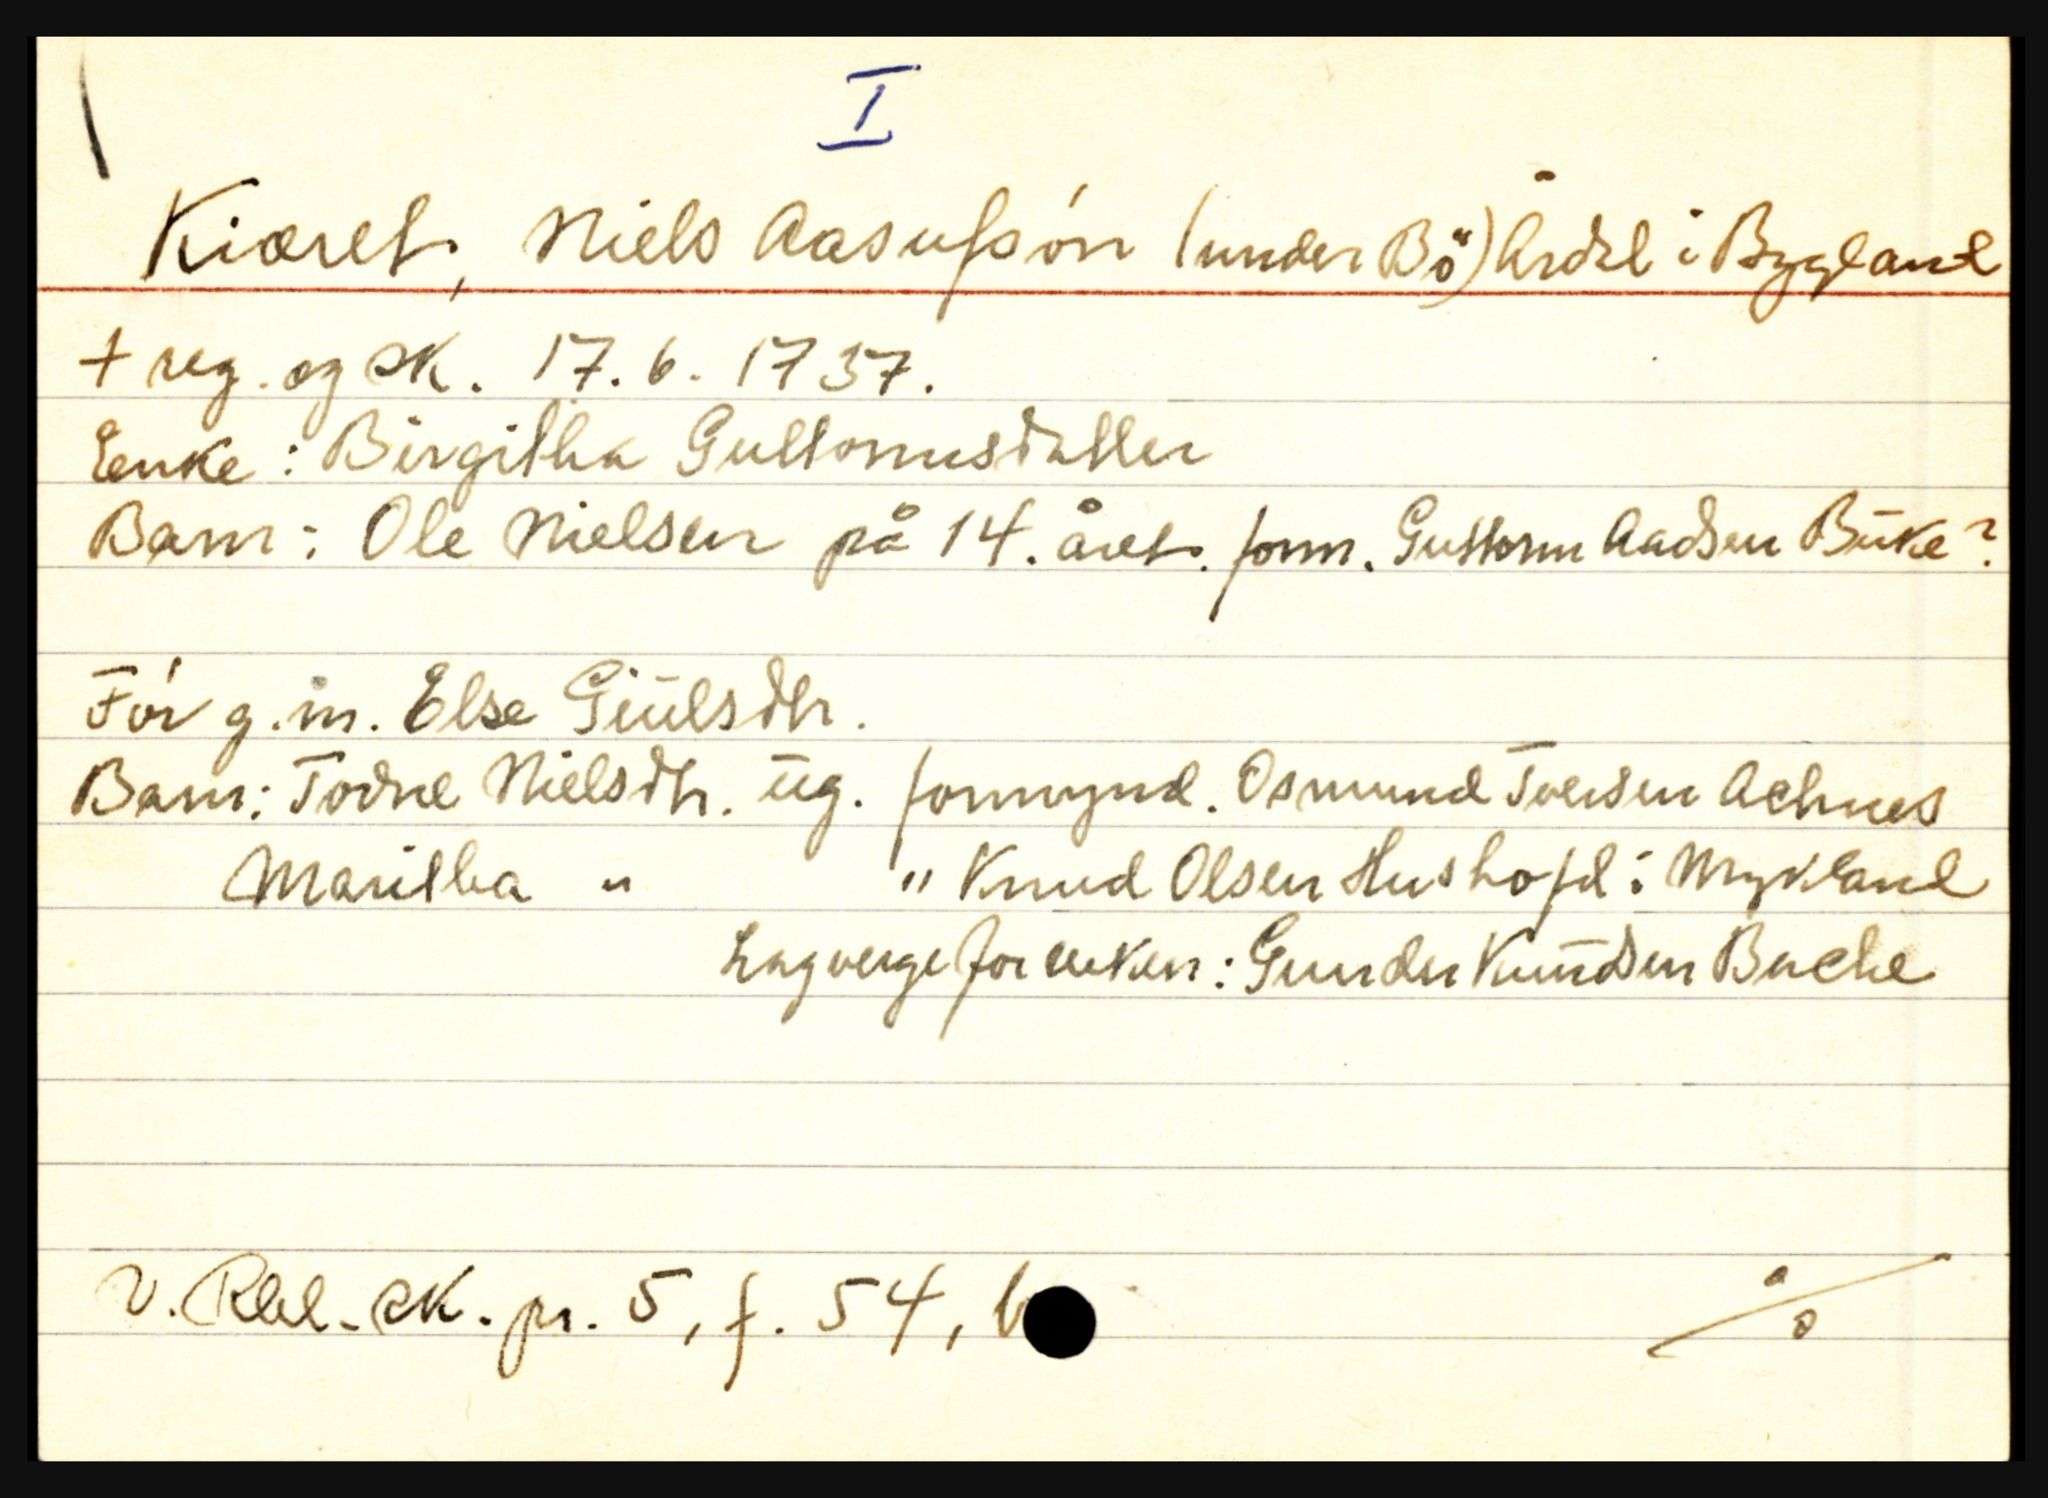 I
Kiæret, Niels Aasufsón (under Bö) Årdal i Bygland
+ reg. og sk. 17.6. 1737.
Enke: Birgitha Guttormsdatter
Barn: Ole Nielsen på 14. året. form. Guttorm Aadsen Büke?
Fór g.m. Else Giülsdtr.
Barn: Torne Nielsdtr. üg. formynd. Osmund Tversen Achnes
Maritha " " Knud Olsen Hushofd i Mykland
Lagverge for enken: Gunder Knüdsen Buche
V. Rbl. sk. pr. 5, f. 54, b
%